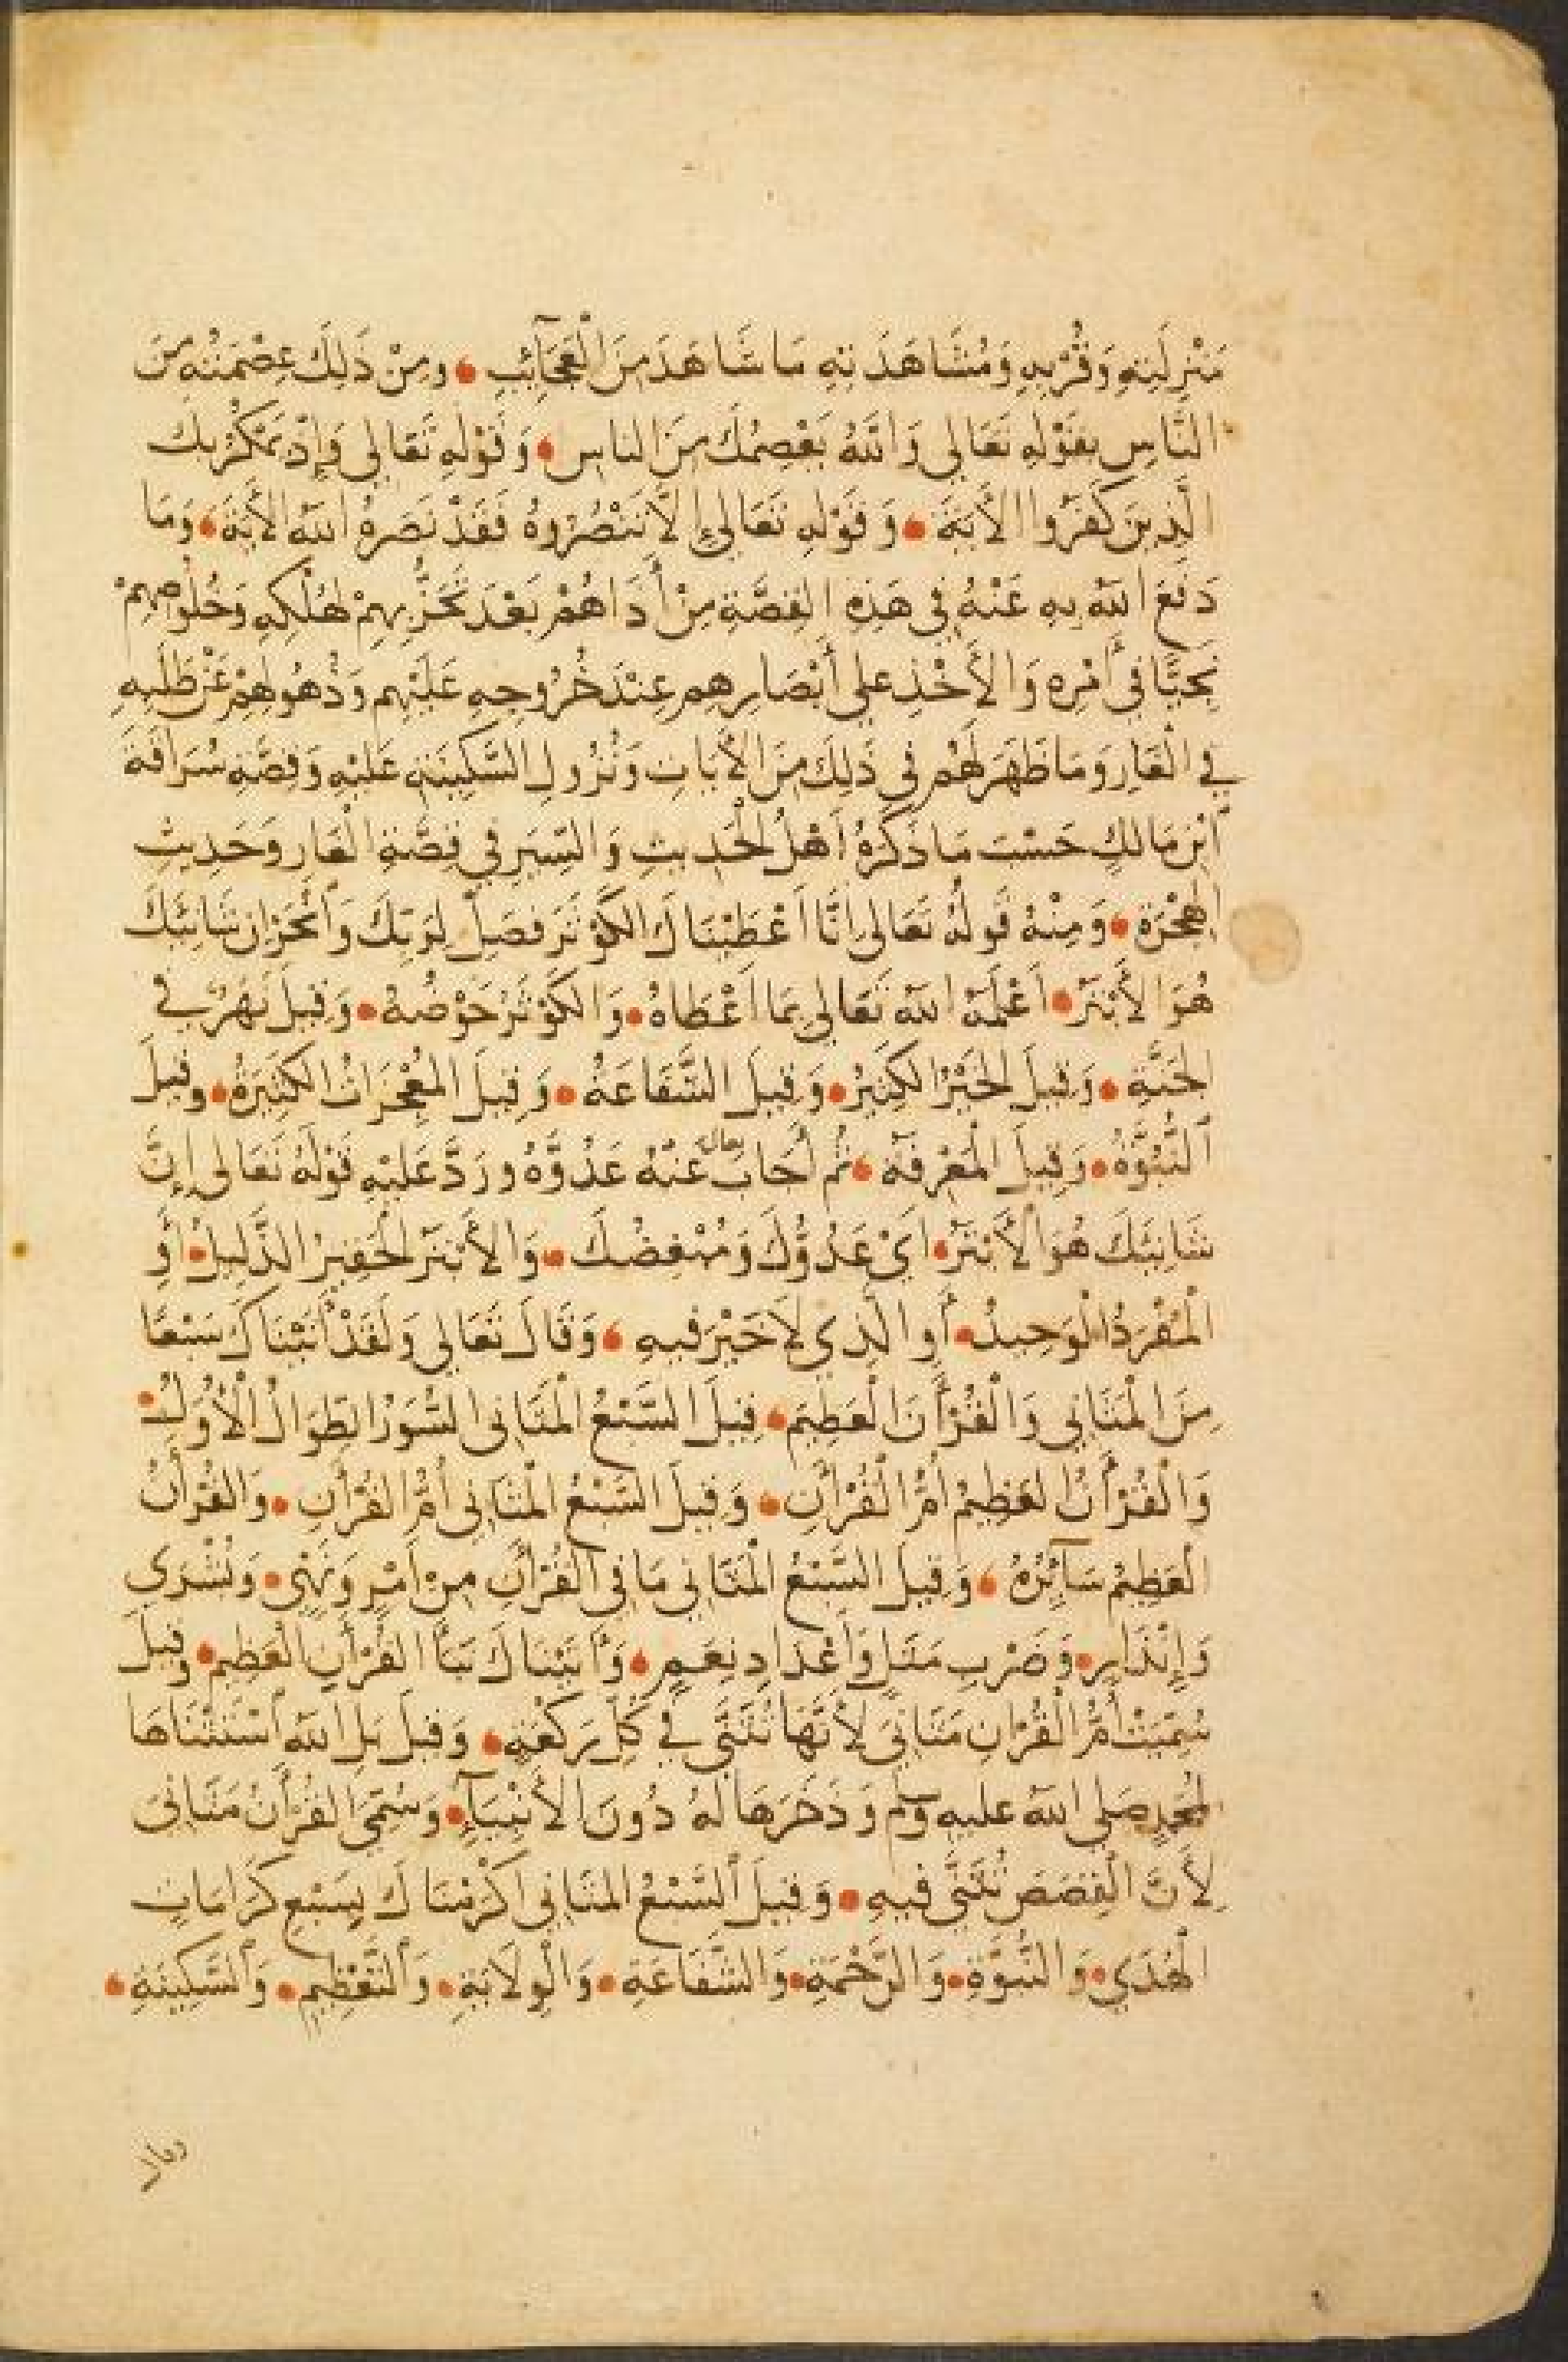 مَنْزِلَتِهِ وَقُرْبِهِ وَمُشَاهَدَتِهِ مَا شَاهَدَ مِنَ الْعَجَآئِبِ وَمِنْ ذَلِكَ عِصْمَتُهُ مِنَ
النَّاسِ بِقَوْلِهِ تَعَالَى وَاللَّهُ يَعْصِمُكَ مِنَ النَّاسِ وَقَوْلِهِ تَعَالَى وَإِذْ يَمْكُرُ بِكَ
الَّذِينَ كَفَرُوا الْأَيَةَ وَقَوْلِهِ تَعَالَى إِلَّا تَنْصُرُوهُ فَقَدْ نَصَرَهُ اللَّهُ الْأَيَةَ وَمَا
دَفَعَ اللَّهُ بِهِ عَنْهُ فِي هَذِهِ الْقِصَّةِ مِنْ أَذَاهُمْ بَعْدَ تَحَزُّبِهِمْ لِهُلْكِهِ وَخُلُوصِهِمْ
نَجِيًّا فِي أَمْرِهِ وَالْأَخْذِ عَلَى أَبْصَارِهِمْ عِنْدَ خُرُوجِهِ عَلَيْهِمْ وَذُهُولِهِمْ عَنْ طَلَبِهِ
فِي الْغَارِ وَمَا ظَهَرَ لَهُمْ فِي ذَلِكَ مِنَ الْأَيَاتِ وَنُزُولِ السَّكِينَةِ عَلَيْهِ وَقِصَّةِ سُرَاقَةَ
ابْنِ مَالِكٍ حَسْبَ مَا ذَكَرَهُ أَهْلُ الْحَدِيثِ وَالسِّيَرِ فِي قِصَّةِ الْغَارِ وَحَدِيثِ
الْهِجْرَةِ وَمِنْهُ قَوْلُهُ تَعَالَى إِنَّا أَعْطَيْنَاكَ الْكَوْثَرَ فَصَلِّ لِرَبِّكَ وَانْحَرْ إِنَّ شَانِئَكَ
هُوَ الْأَبْتَرُ أَعْلَمَهُ اللَّهُ تَعَالَى بِمَا أَعْطَاهُ وَالْكَوْثَرُ حَوْضُهُ وَقِيلَ نَهَرٌ فِي
الْجَنَّةِ وَقِيلَ الْخَيْرُ الْكَثِيرُ وَقِيلَ الشَّفَاعَةُ وَقِيلَ الْمُعْجِزَاتُ الْكَثِيرَةُ وَقِيلَ
النُّبُوَّةُ وَقِيلَ الْمَعْرِفَةُ ثُمَّ أَجَابَ تعالى عَنْهُ عَدُوَّهُ وَرَدَّ عَلَيْهِ قَوْلَهُ تَعَالَى إِنَّ
شَانِئَكَ هُوَ الْأَبْتَرُ أَيْ عَدُوُّكَ وَمُبْغِضُكَ وَالْأَبْتَرُ الْحَقِيرُ الذَّلِيلُ أَوِ
الْمُفْرَدُ الْوَحِيدُ أَوِ الَّذِي لَا خَيْرَ فِيهِ وَقَالَ تَعَالَى وَلَقَدْ أَتَيْنَاكَ سَبْعًا
مِنَ الْمَثَانِي وَالْقُرْأَنَ الْعَظِيمَ قِيلَ السَّبْعُ الْمَثَانِي السُّوَرُ الطِّوَالُ الْأُوَلُ
وَالْقُرْأَنُ الْعَظِيمُ أُمُّ الْقُرْأَنِ وَقِيلَ السَّبْعُ الْمَثَانِي أُمُّ الْقُرْأَنِ وَالْقُرْأَنُ
الْعَظِيمُ سَآئِرُهُ وَقِيلَ السَّبْعُ الْمَثَانِي مَا فِي الْقُرْأَنِ مِنْ أَمْرٍ وَنَهْيٍ وَبُشْرَى
وَإِنْذَارٍ وَضَرْبِ مَثَلٍ وَأَعْدَادِ نِعَمٍ وَأَتَيْنَاكَ نَبَأَ الْقُرْأَنِ الْعَظِيمِ وَقِيلَ
سُمِّيَتْ أُمُّ الْقُرْانِ مَثَانِيَ لِأَنَّهَا تُثَنَّى فِي كُلِّ رَكْعَةٍ وَقِيلَ بَلِ اللَّهُ اسْتَثْنَاهَا
لِمُحَمَّدٍ صَلَّى اللَّهُ عَلَيْهِ وَسَلَّمَ وَذَخَرَهَا لَهُ دُونَ الْأَنْبِيَآءِ وَسُمِّيَ الْقُرْأَنُ مَثَانِيَ
لِأَنَّ الْقِصَصَ تُثَنَّى فِيهِ وَقِيلَ السَّبْعُ الْمَثَانِي أَكْرَمْنَاكَ بِسَبْعِ كَرَامَاتٍ
الْهُدَى وَالنُّبُوَّةِ وَالرَّحْمَةِ وَالشَّفَاعَةِ وَالْوِلَايَةِ وَالتَّعْظِيمِ وَالسَّكِينَةِ
وقال